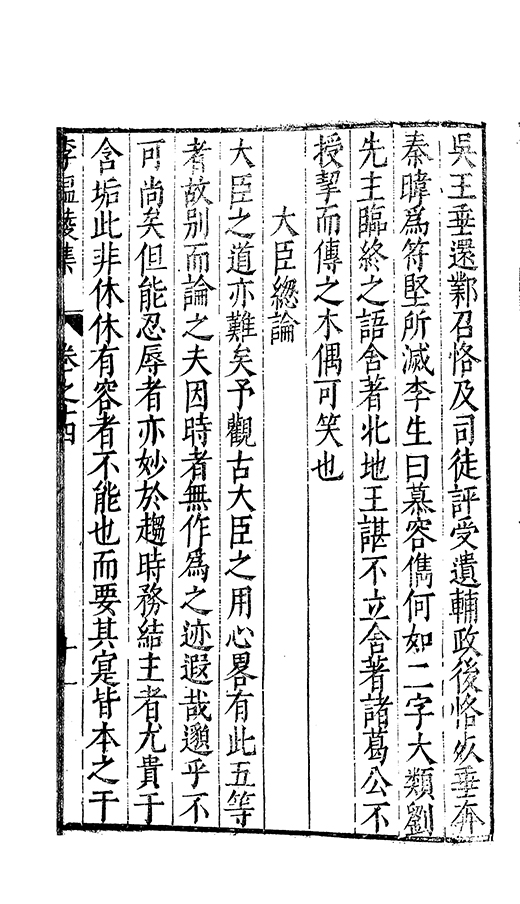 吳王垂還鄴召恪及司徒評受遺輔政後恪歿垂奔
秦暐爲符堅所滅李生曰慕容儁何如二字大類劉
先主臨終之語舍著北地王諶不立舍著諸葛公不
授挈而傳之木偶可笑也
大臣緫論
大臣之道亦難矣予觀古大臣之用心畧有此五等
者故别而論之夫因時者無作爲之迹遐哉邈乎不
可尚矣但能忍辱者亦妙於趨時務結主者尤貴于
含垢此非休休有容者不能也而要其寔皆本之于
李温陵集
卷之十四
十一